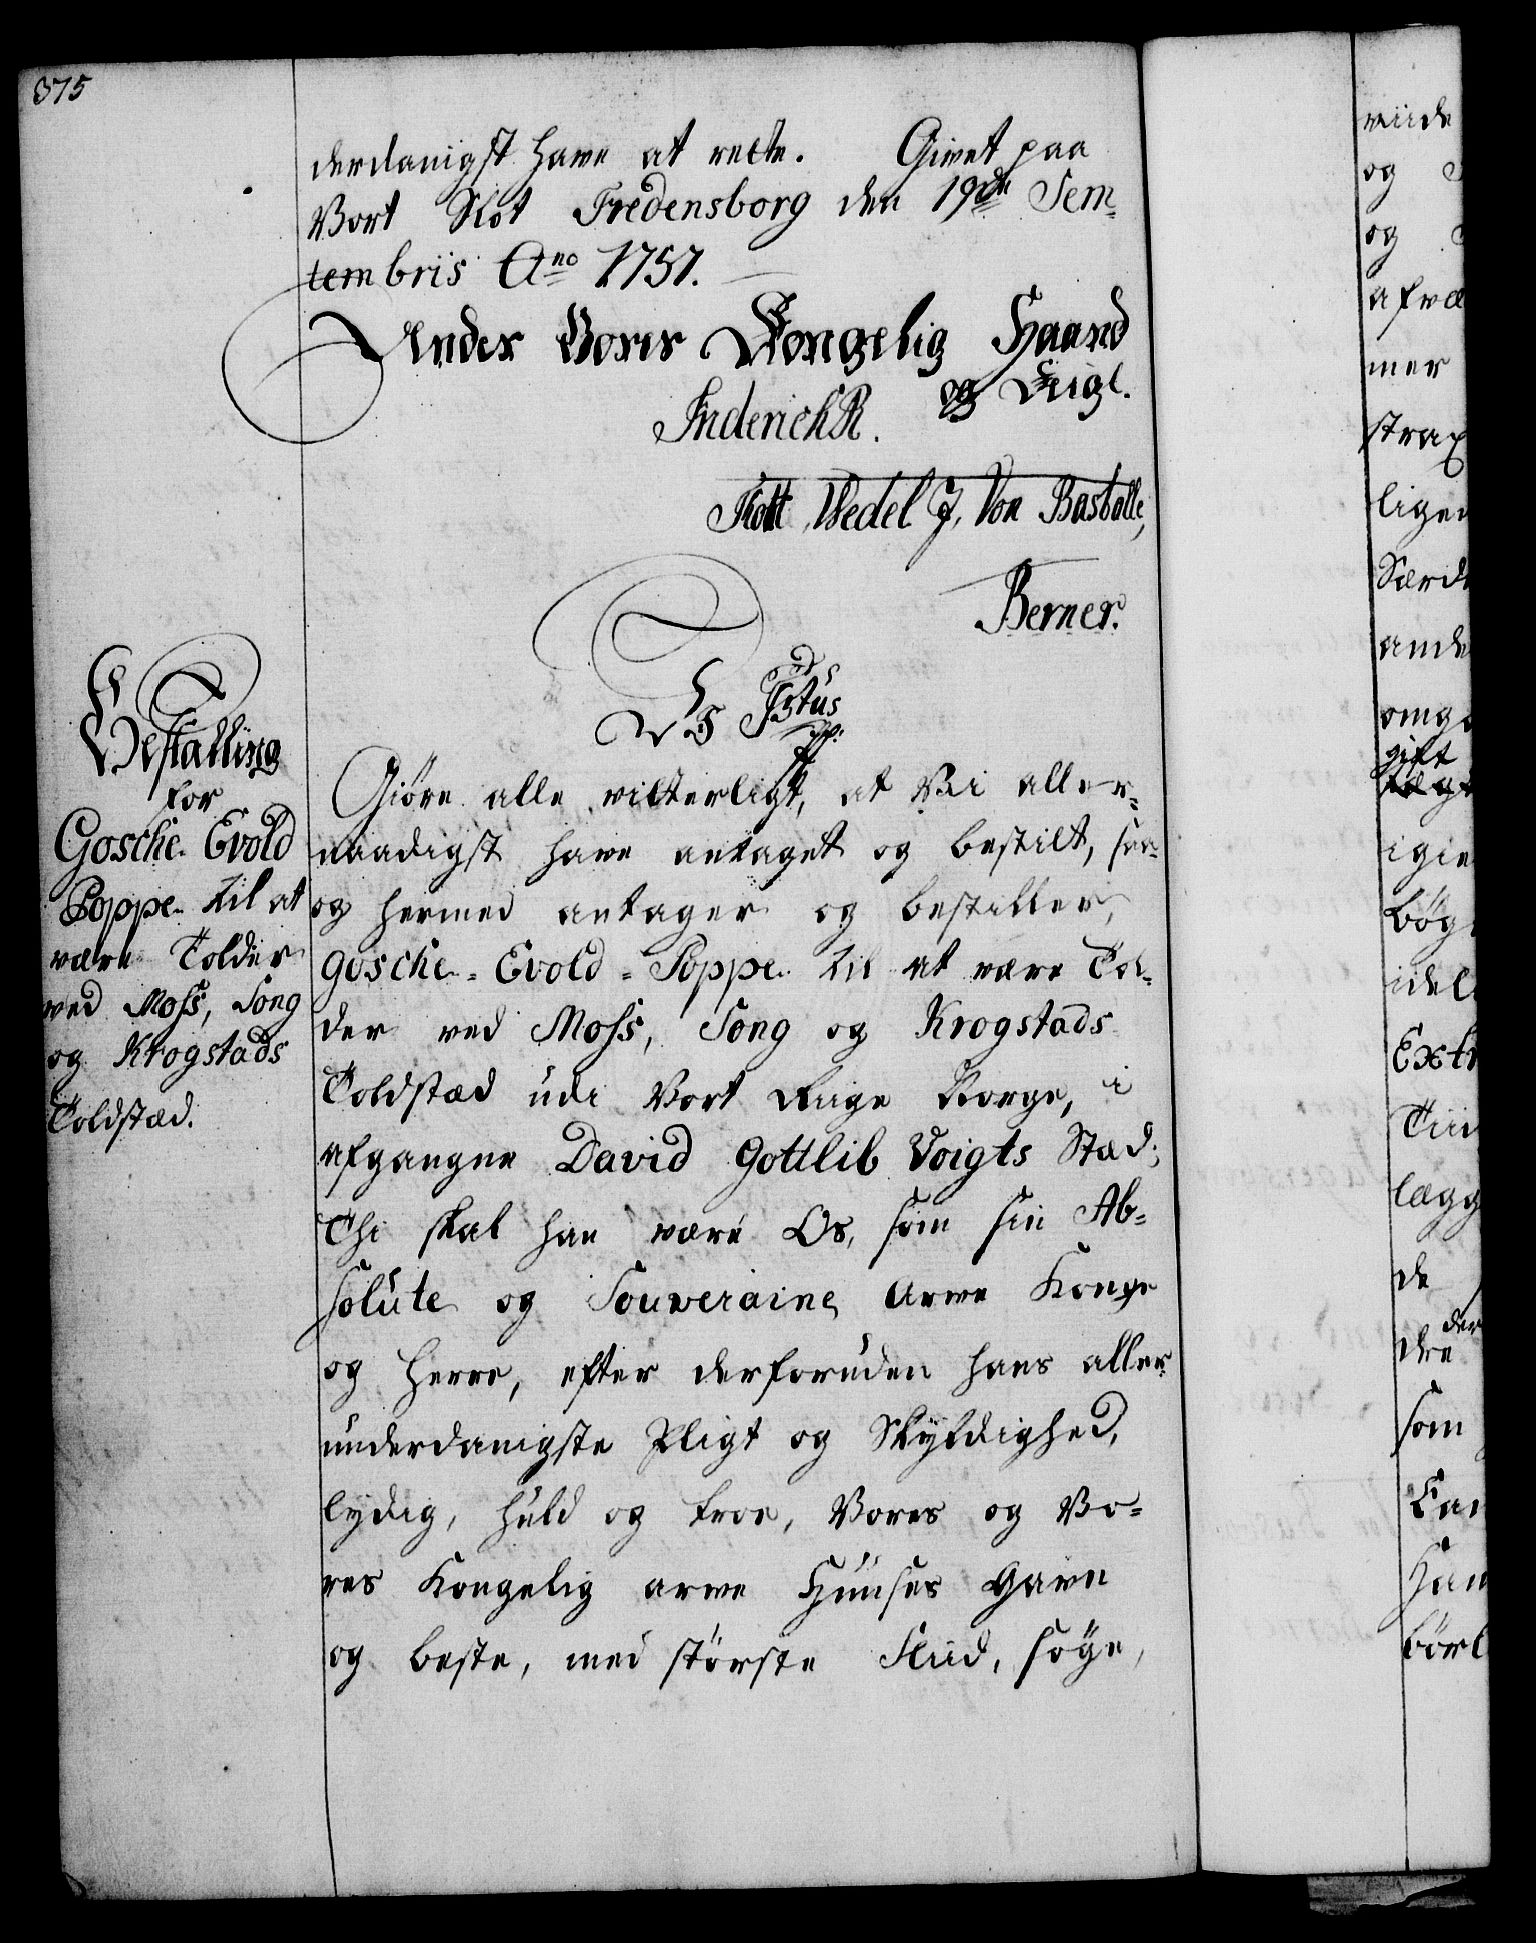 375
derdanigst have at rette. Givet paa
Vort Slot Fredensborg den 19de Sem-
tembris Ano 1757.
Under Vores Kongelig Haand
og Seigl.
Friderich R.
Holtt Wedel J. Von Basballe,
Berner.
Bestalling
for
Gosche Evold
Poppe til at
være Tolder
ved Moss, Song
og Krogstads
Toldstæd.
VF 5tus
pp:
Giøre alle vitterligt, at Vi aller-
naadigst have antaget og bestilt, saa-
og hermed antager og bestiller,
Gosche-Evold-Poppe til at være Tol-
der ved Moss, Song og Krogstads
Toldstæd udi Vort Riige Norge, i
afgangne David Gottlib Voigts Stæd;
Thi skal han være Os, som sin Ab-
solute og Souveraine Arve Konge
og Herre, efter derforuden hans aller-
underdanigste Pligt og Skyldighed,
lydig, huld og troe, Vores og Vo-
res Kongelig arve Huuses Gavn
og beste, med største Fliid, søge,
viide
og
og
afvæ
mer
strax
ligen
Særde
ande
omga
gift
igie
bøg
idel
Extr
Tiid
lægg
de
der
dre
som
Cam
Ham
børl